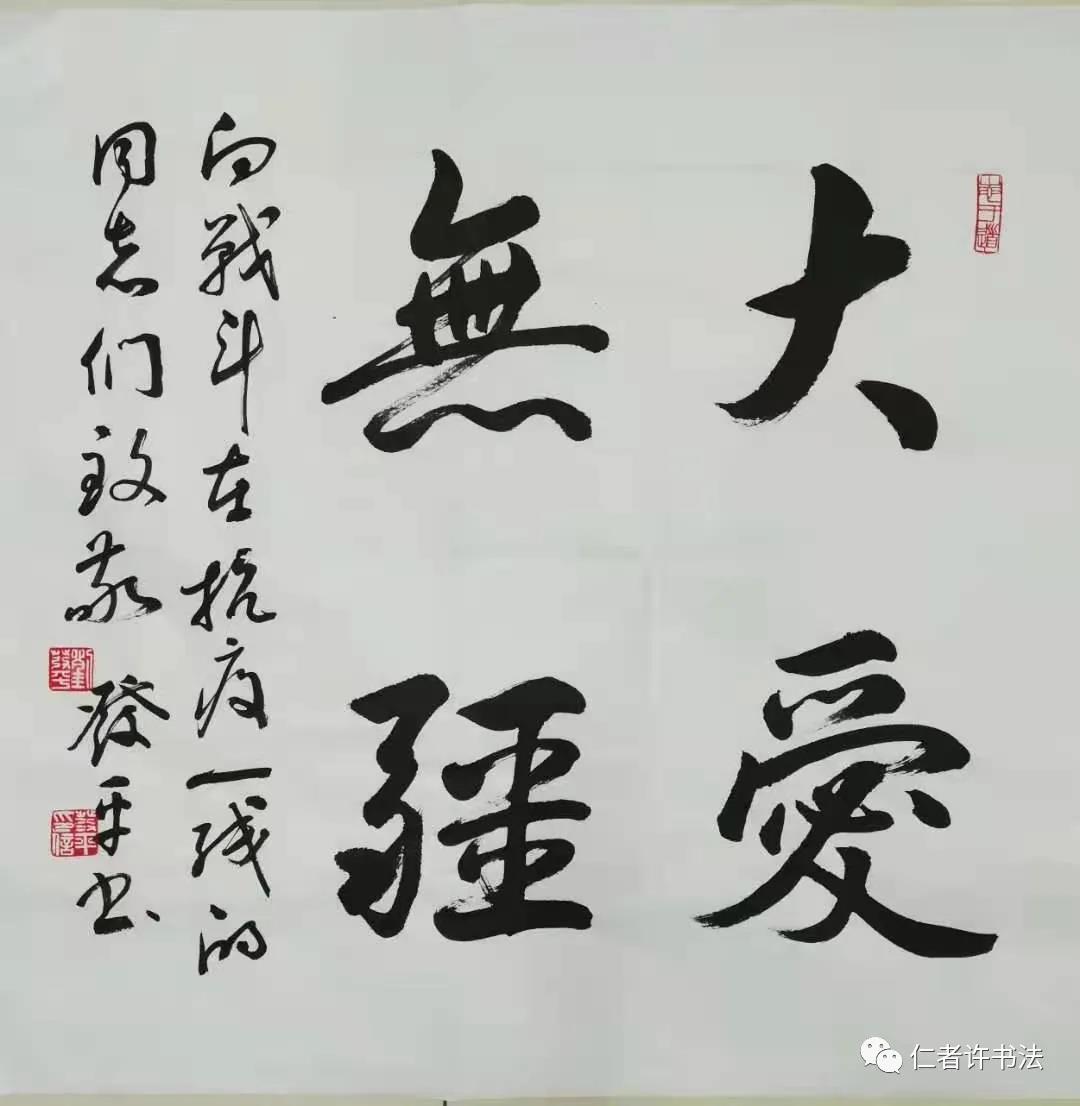 大愛
無疆
向戰斗在抗疫一线的
同志们致敬 發平书
仁者许书法